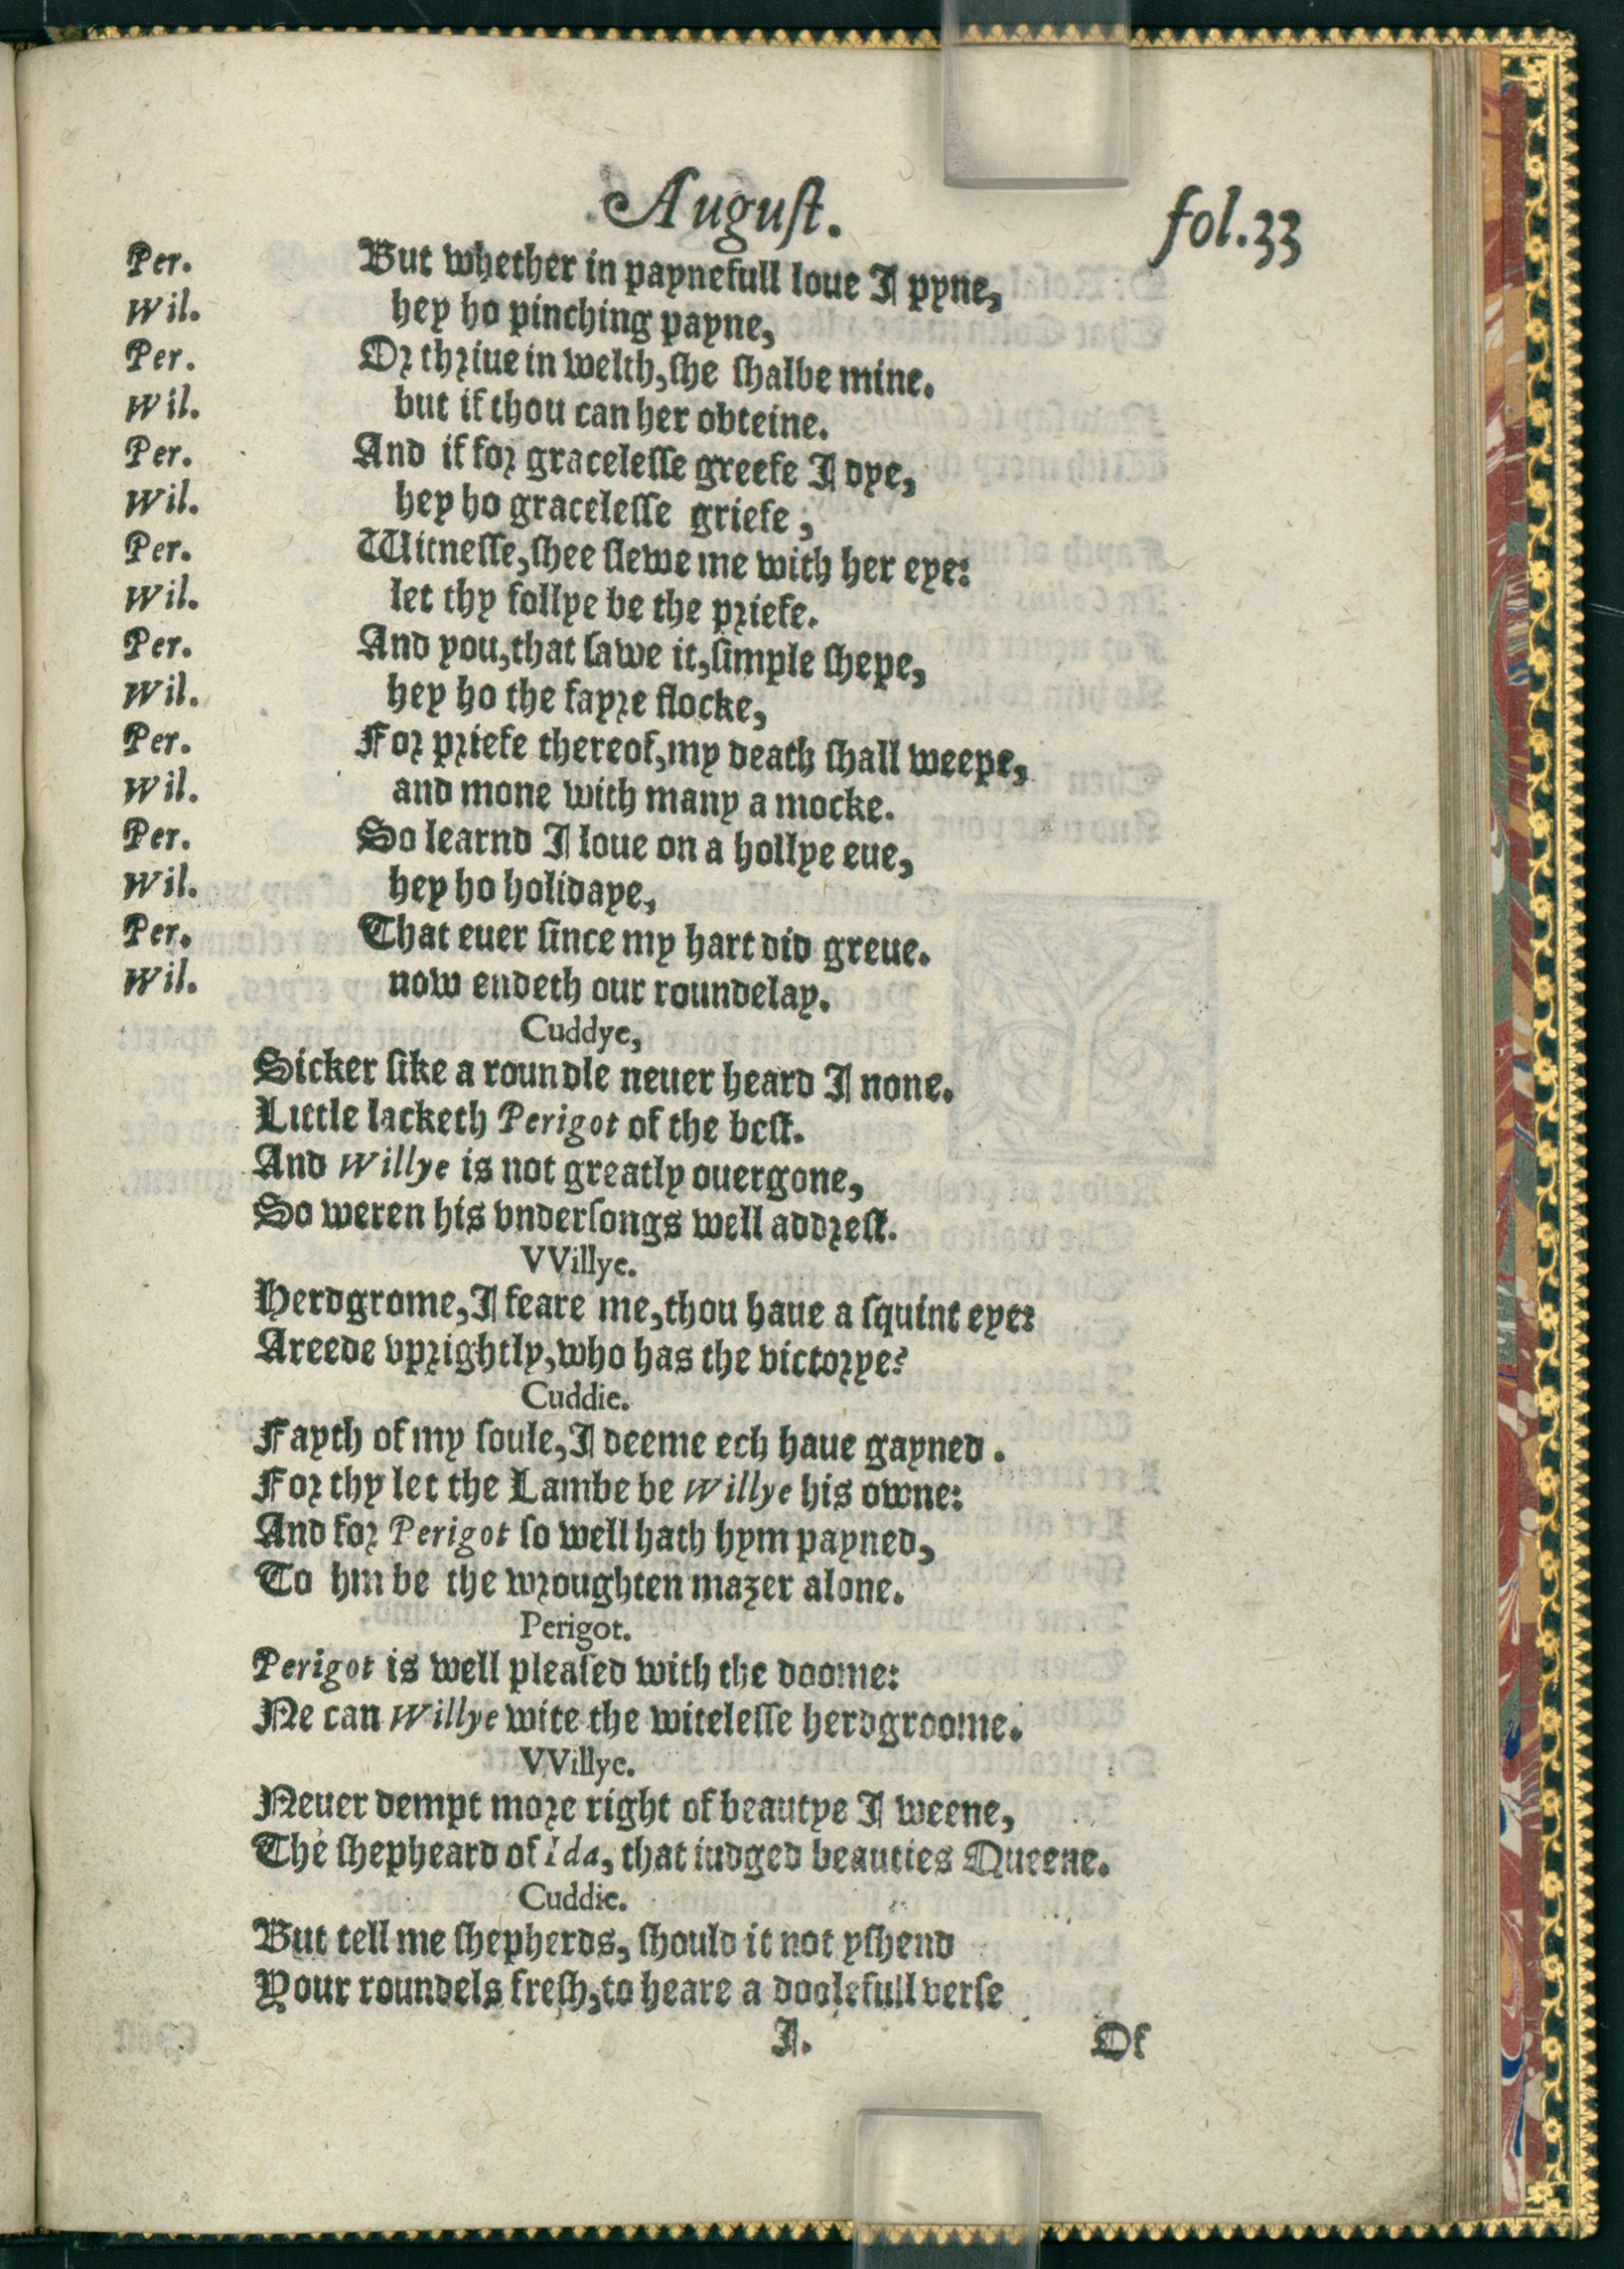 Auguſt.
fol.33
Per. But whether in paynefull loue I pyne,
Wil. hey ho pinching payne,
Per. Or thriue in welth, ſhe ſhalbe mine.
Wil. but if thou can her obteine.
Per. And if for graceleſſe greefe I dye,
Wil. hey ho graceleſſe griefe,
Per. Witneſſe, ſhee ſlewe me with her eye:
Wil. let thy follye be the priefe.
Per. And you, that ſawe it, ſimple ſhepe,
Wil. hey ho the fayre flocke,
Per. For priefe thereof, my death ſhall weepe,
Wil. and mone with many a mocke.
Per. So learnd I loue on a hollye eue,
Wil. hey ho holidaye,
Per. That euer ſince my hart did greue.
Wil. now endeth our roundelay.
Cuddye,
Sicker ſike a roundle neuer heard I none.
Little lacketh Perigot of the beſt.
And Willye is not greatly ouergone,
So weren his vnderſongs well addreſt.
VVillye.
Herdgrome, I feare me, thou haue a ſquint eye:
Areede vprightly, who has the victorye?
Cuddie.
Fayth of my ſoule, I deeme ech haue gayned.
For thy let the Lambe be Willye his owne:
And for Perigot ſo well hath hym payned,
To hm be the wroughten mazer alone.
Perigot.
Perigot is well pleaſed with the doome:
Ne can Willye wite the witeleſſe herdgroome.
VVillye.
Neuer dempt more right of beautye I weene,
The ſhepheard of Ida, that iudged beauties Queene.
Cuddie.
But tell me ſhepherds, ſhould it not yſhend
Your roundels freſh, to heare a doolefull verſe
I.
Of